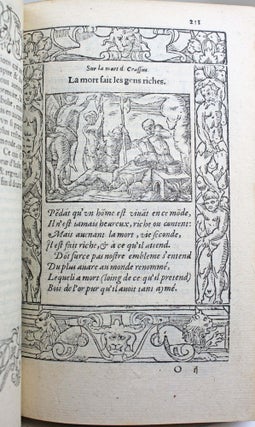 211
Sur la mort d. Crassus.
La mort fait les gens riches.
Pẽdãt qu'vn hõme est viuãt en ce mõde,
Il n'est iamais heureux, riche ou content:
Mais auenant la mort, vie seconde,
Il est fait riche, & a ce qu'il atend.
Doi surce pas nostre embleme s'entend
Du plus auare au monde renommé,
Lequel à mort (loing de ce qu'il pretend)
Boit de l'or pur qu'il auoit tant aymé.
O ij